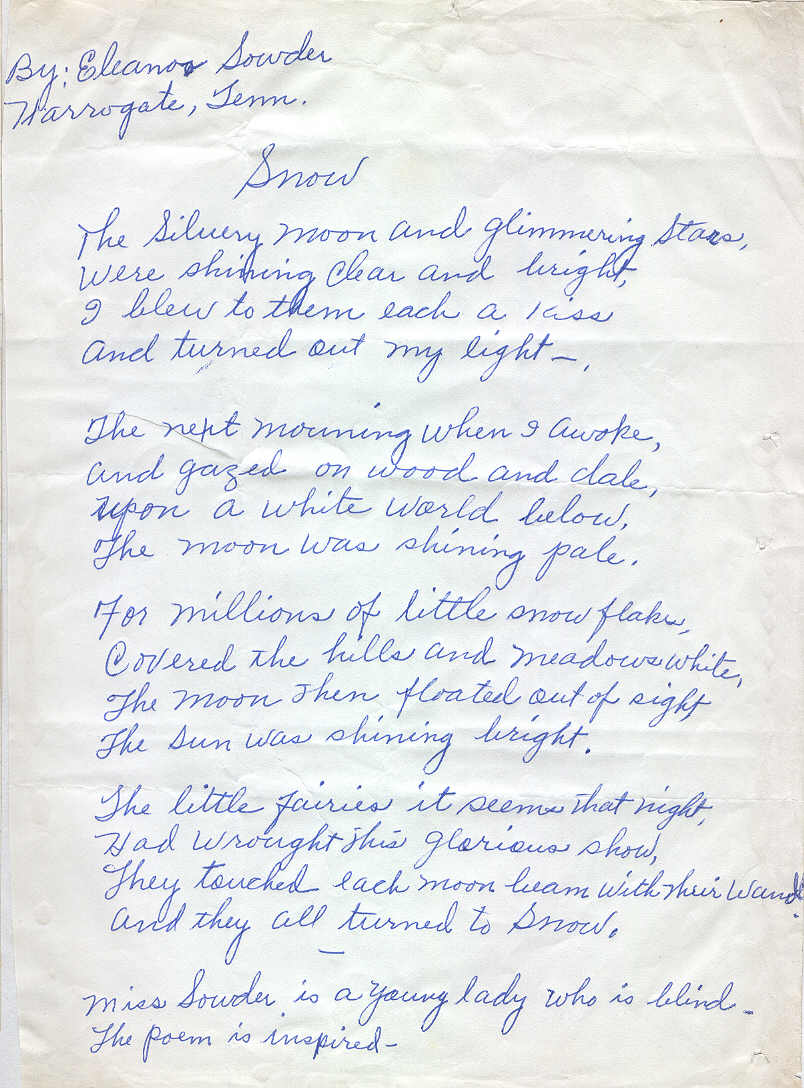 By: Eleanor Sowder
Harrogate, Tenn.
Snow
The Silvery moon and glimmering Stars,
were shining Clear and bright,
I blew to them each a kiss
and turned out my light—.
The next mourning when I awoke,
and gazed on wood and dale,
upon a white world below,
The moon was shining pale.
For millions of little snow flakes,
Covered the hills and meadows white,
The moon then floated out of sight,
The Sun was shining bright.
The little fairies it seems that night,
Had wrought this glorious show,
They touched each moon beam with their wand,
and they all turned to Snow.
Miss Sowder is a young lady who is blind—
The poem is inspired—